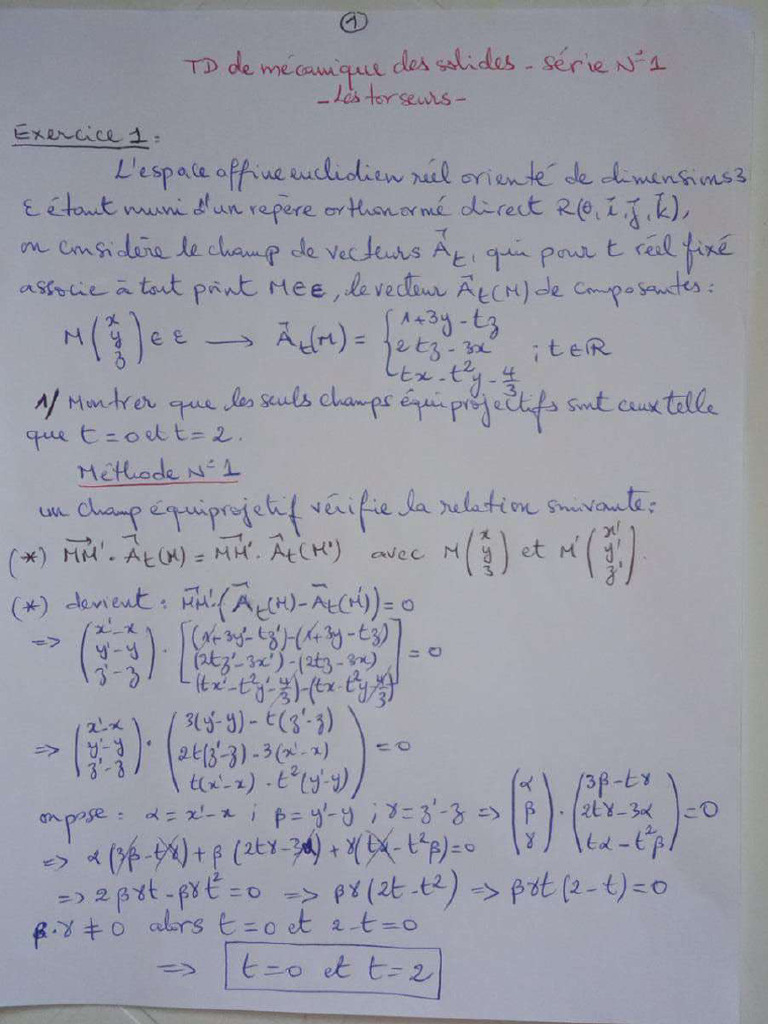 1
TD de mécanique des solides - série N°1
- Les torseurs -
Exercice 1 :
L'espace affine euclidien réel orienté de dimensions 3
ε étant muni d'un repère orthonormé direct R(0, i⃗, j⃗, k⃗),
on considère le champ de vecteurs A⃗t, qui pour t réel fixé
associe à tout point M∈ε, le vecteur A⃗t(M) de composantes :
M (x y z) ∈ ε → A⃗t(M) = { 1+3y-tz
2tz-3x ; t∈ℝ
tx-t²y-4/3
1/ Montrer que les seuls champs équiprojectifs sont ceux telle
que t=0 et t=2.
Méthode N°1
un champ équiprojetif vérifie la relation suivante :
(*) MM'⃗ · A⃗t(M) = MM'⃗ · A⃗t(M') avec M (x y z) et M' (x' y' z').
(*) devient : MM'⃗·(A⃗t(M)-A⃗t(M'))=0
=> (x'-x y'-y z'-z) · [(1+3y'-tz')-(1+3y-tz)
(2tz'-3x')-(2tz-3x)
(tx'-t²y'-4/3)-(tx-t²y-4/3)] = 0
=> (x'-x y'-y z'-z) · (3(y'-y)-t(z'-z)
2t(z'-z)-3(x'-x)
t(x'-x)-t²(y'-y)) = 0
on pose : α=x'-x ; β=y'-y ; γ=z'-z => (α β γ) · (3β-tγ 2tγ-3α tα-t²β) = 0
=> α(3β-tγ)+β(2tγ-3α)+γ(tα-t²β)=0
=> 2βγt-βγt²=0 => βγ(2t-t²) => βγt(2-t)=0
β·γ ≠ 0 alors t=0 et 2-t=0
=> t=0 et t=2